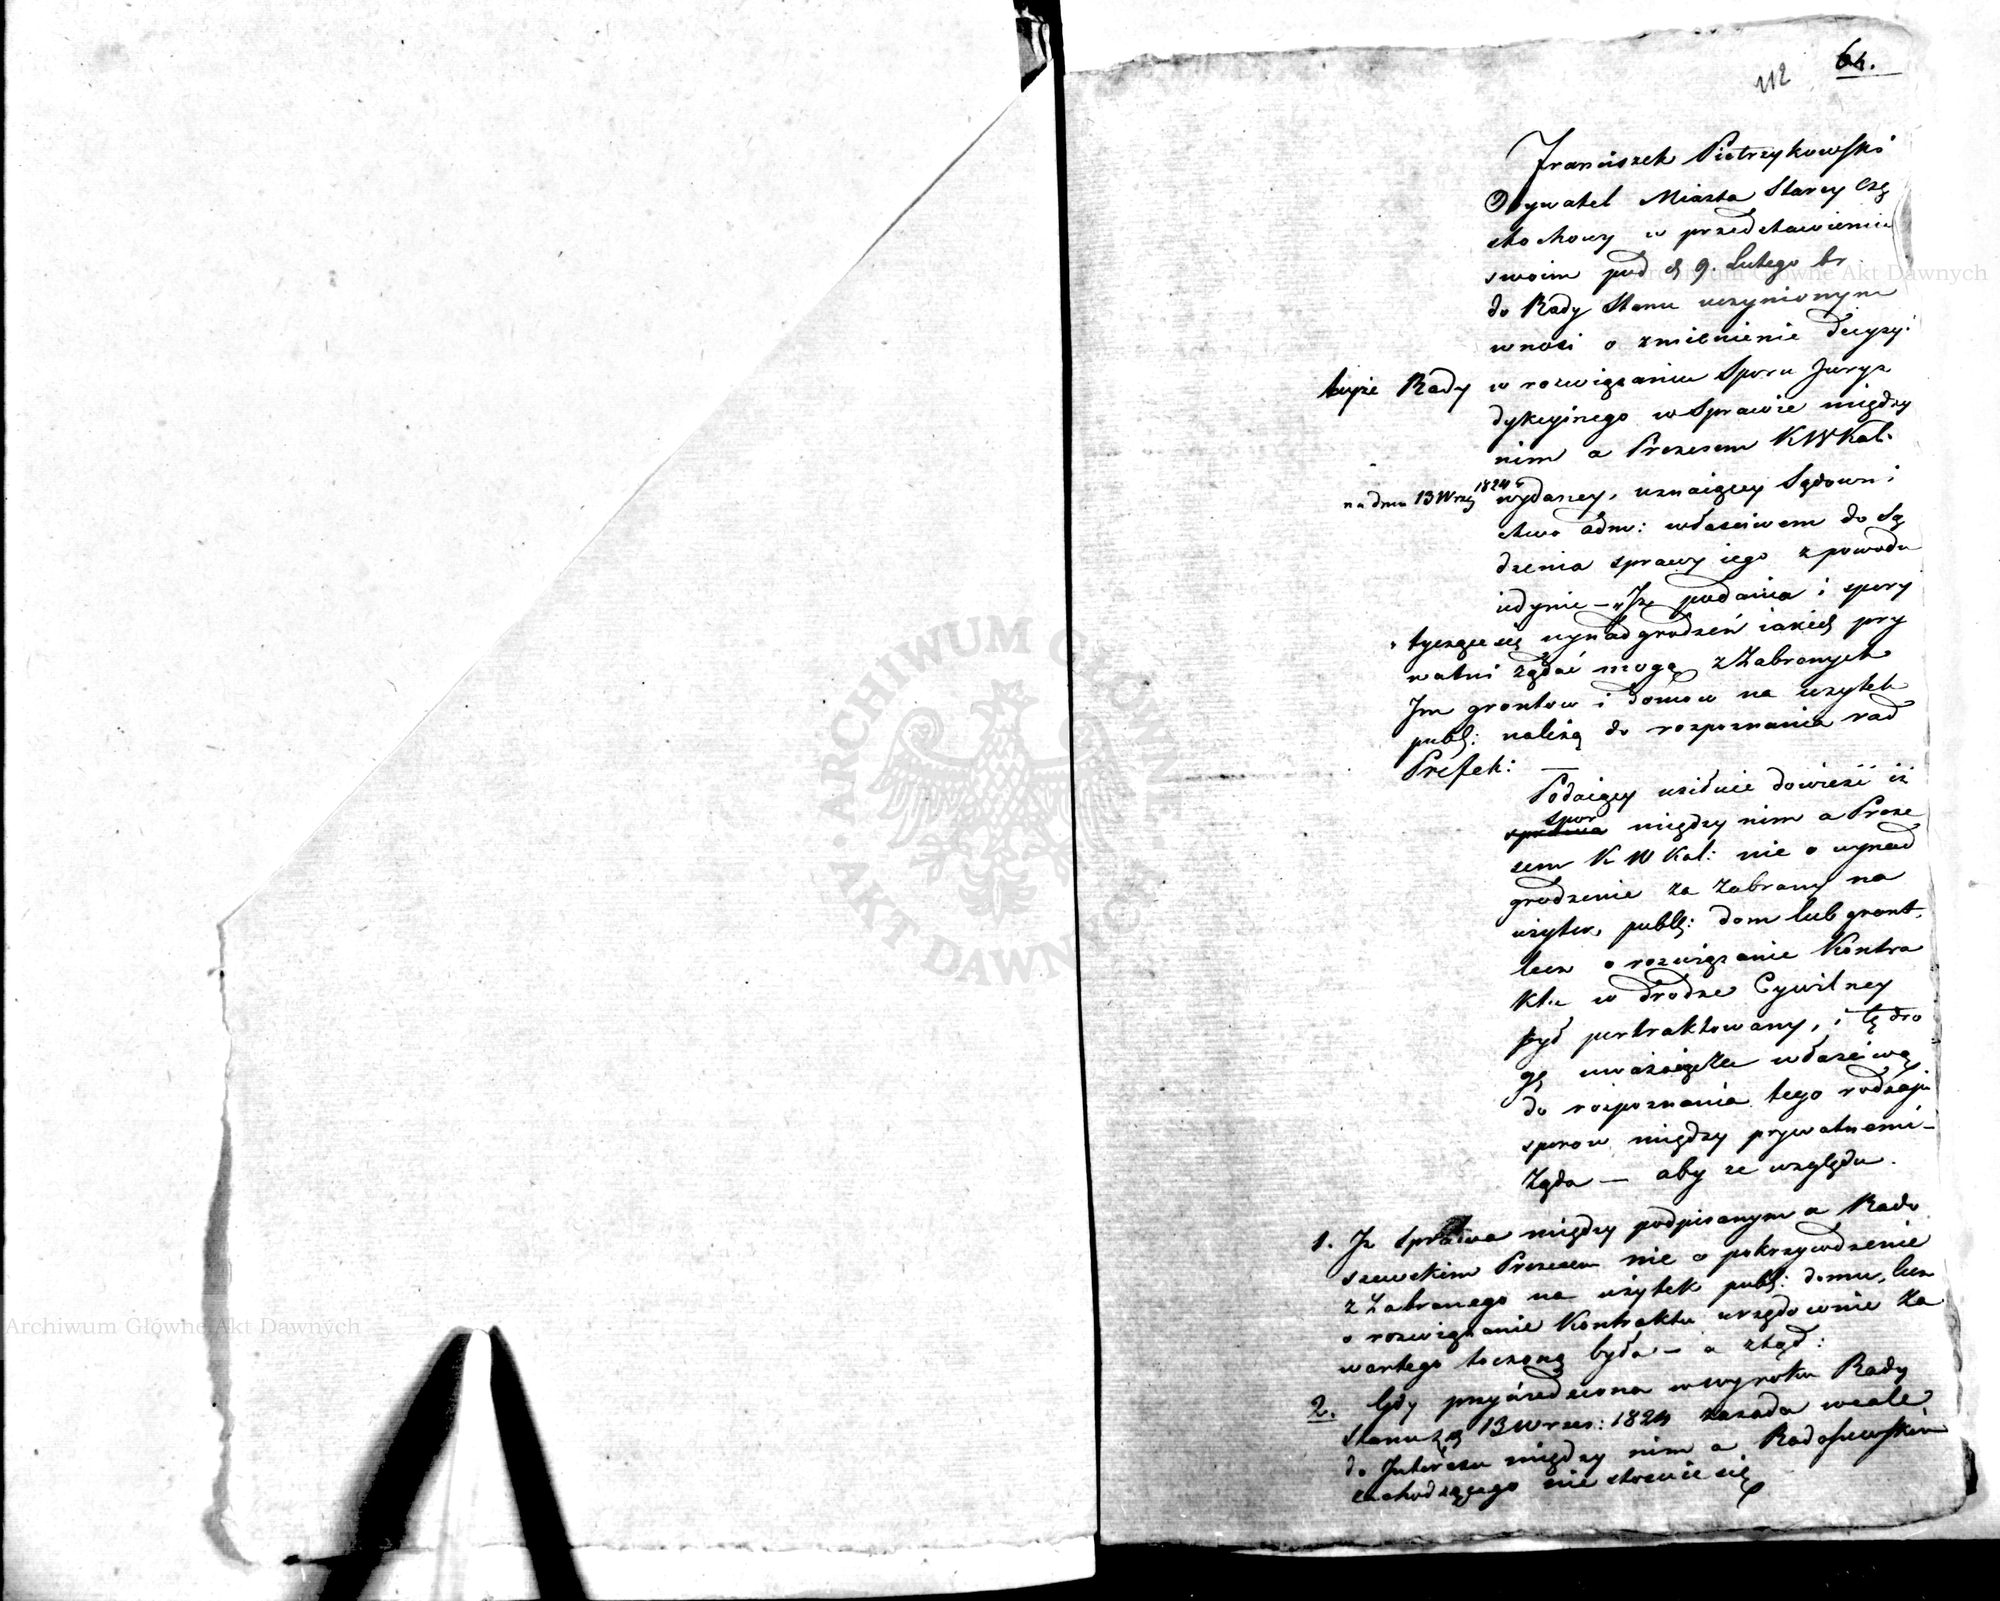 112 64.
Franciszek Pietrzykowski
Obywatel Miasta Starey Czę
stochowy w przedstawieniu
swoim pod d 9. Lutego br
do Rady Stanu uczynionym
wnosi o zmienienie decyzyi
teyże Rady w rozwiązaniu Sporu Jurys
dykcyinego w Sprawie między
nim a Prezesem KWKal:
na dniu 13 Wrześ 1824 r wydaney, uznaiącey Sądowni
ctwo adm: właściwem do Są
dzenia sprawy iego z powodu
iedynie — „Iże podania i spory
„ tyczące się wynadgrodzeń iakich pry
watni żądać mogą z Zabranych
Im grontow i domow na użytek
publ: należą do rozpoznania rad
Prefek: —
Podaiący usiłuie dowieść iż
spor
sprawa między nim a Preze
sem K W Kal: nie o wynad
grodzenie za Zabrany na
użytek publ: dom lub gront,
lecz o rozwiązanie Kontra
ktu w drodze Cywilney
był pertraktowany, i tę dro
gę uważaiąc za właściwą
do rozpoznania tego rodzaju
sporow między prywatnemi —
Żąda — aby ze względu.
1. Iż sprawa między podpisanym a Rado
szewskim Prezesem nie o pokrzywdzenie
z Zabranego na użytek publ: domu, lecz
o rozwiązanie Kontraktu urzędownie Za
wartego toczoną była — a ztąd:
2. Gdy przywiedziona w wyroku Rady
Stanu z d 13 Wrzes: 1824 zasada wcale
do Interesu między nim a Radoszewskim
zachodzącego nie stosuie się
Archiwum Główne Akt Dawnych
ARCHIWUM GŁÓWNE
AKT DAWNYCH
Archiwum Główne Akt Dawnych